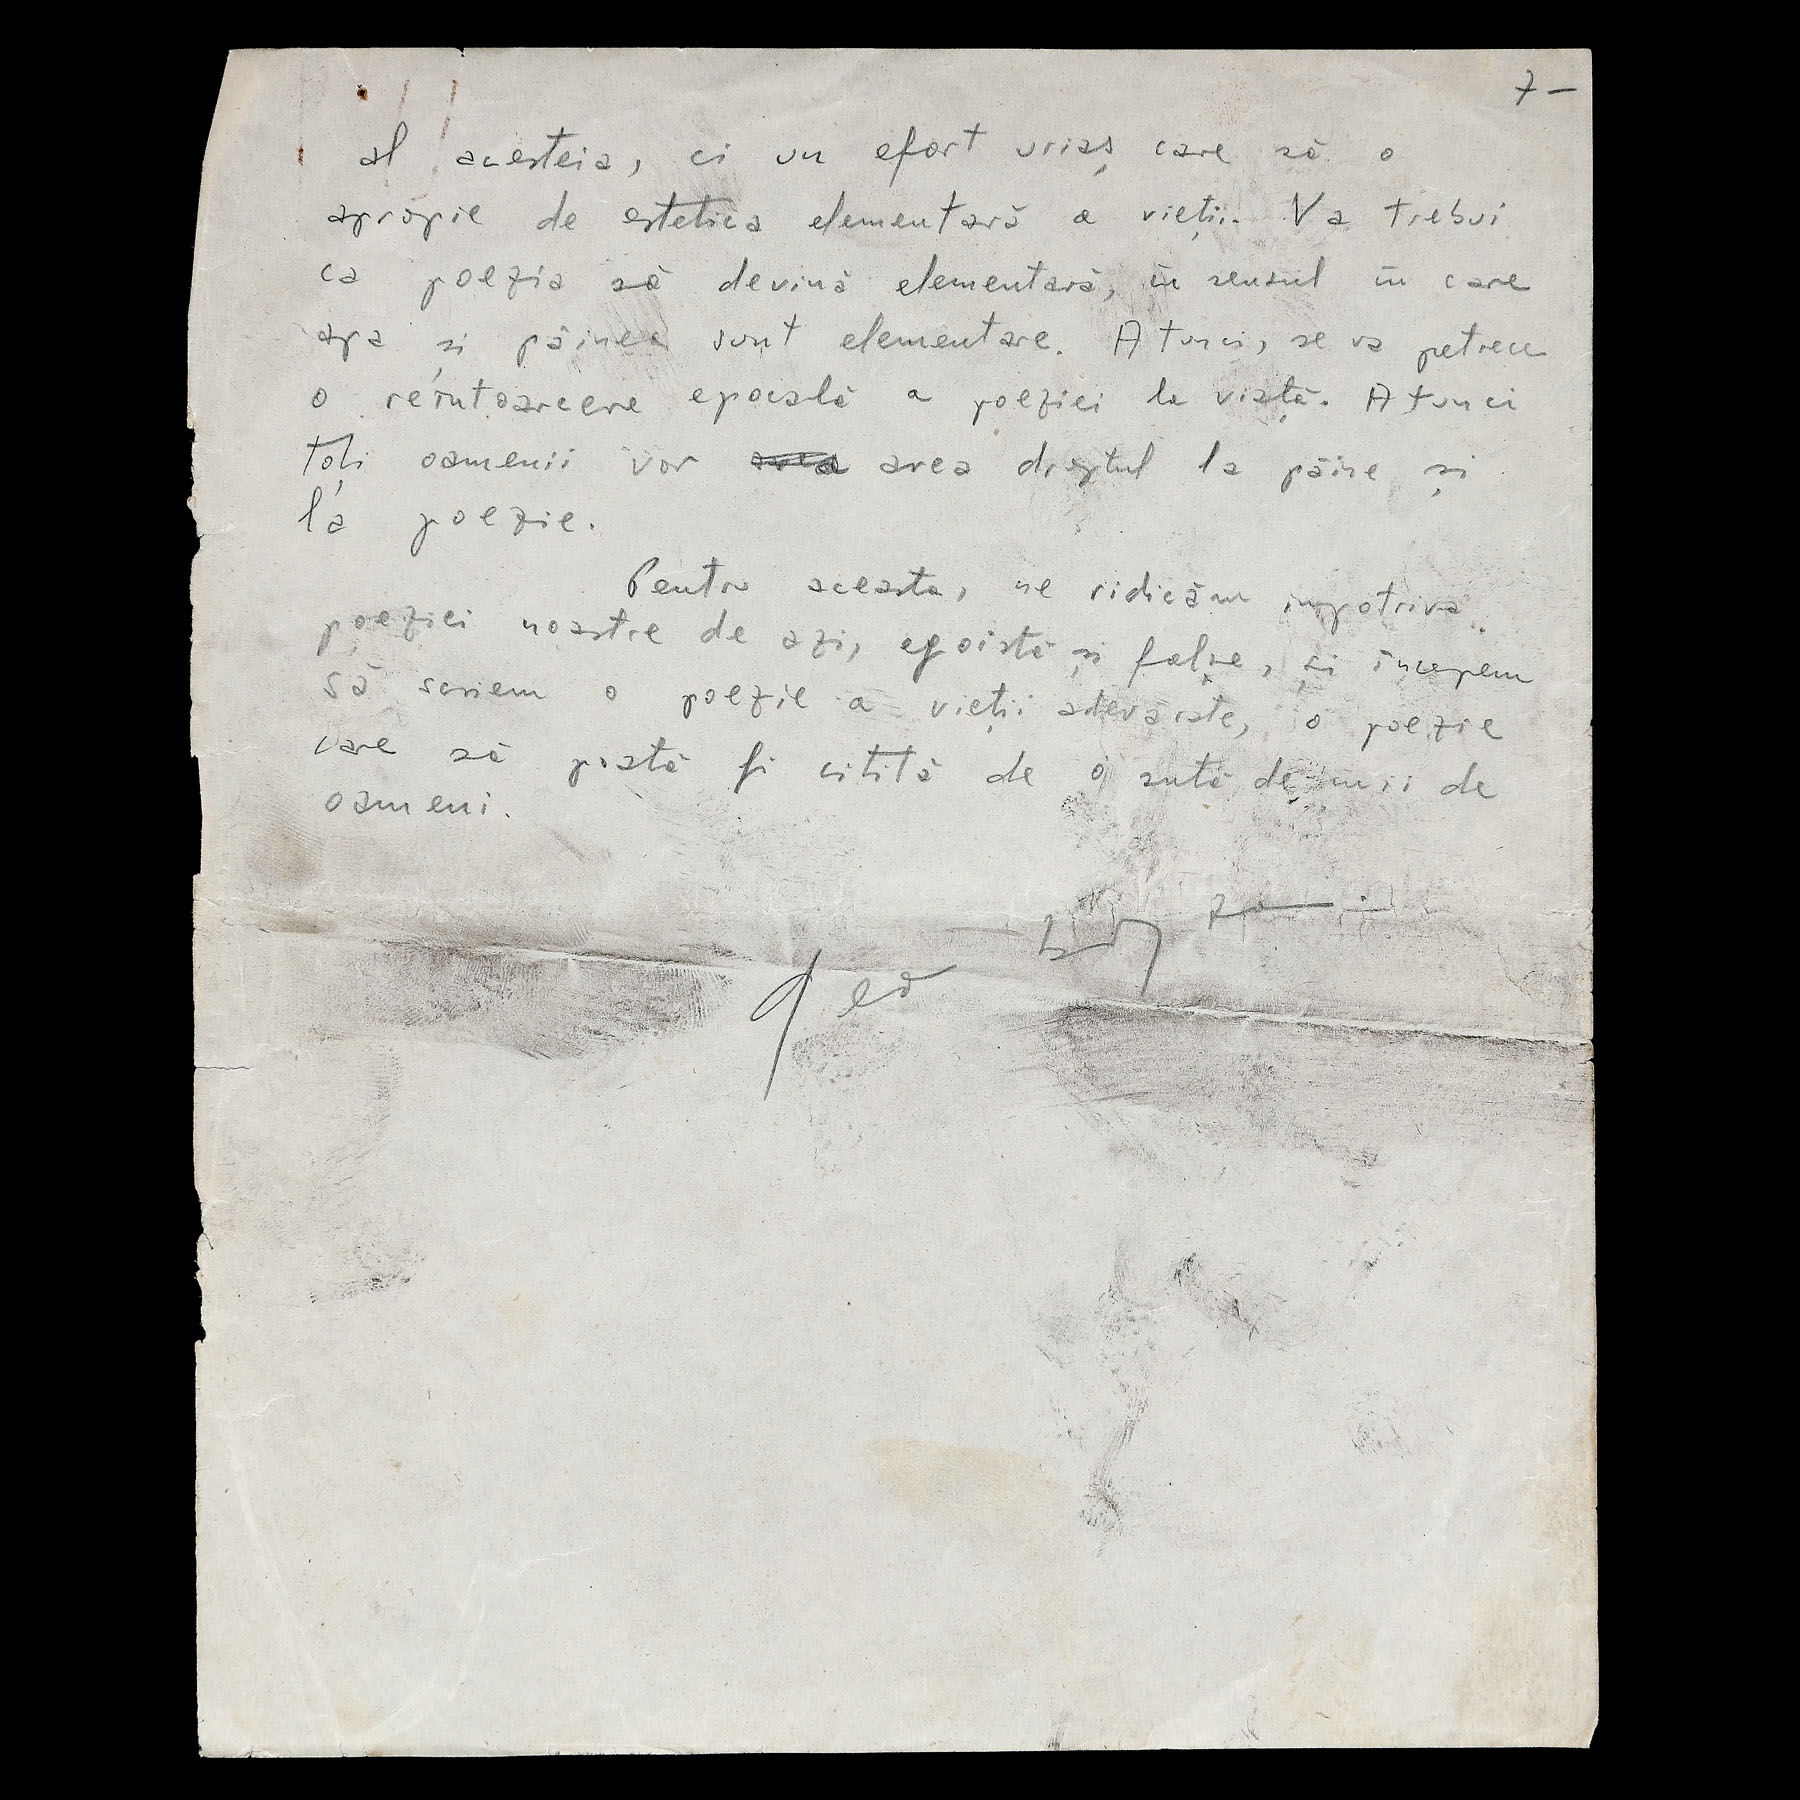 7 –
al acesteia, ci un efort uriaș care să o
apropie de estetica elementară a vieții. Va trebui
ca poezia să devină elementară, în sensul în care
apa și pâinea sunt elementare. Atunci, se va petrece
o reîntoarcere epocală a poeziei la viață. Atunci
toți oamenii vor avea dreptul la pâine și
la poezie.
Pentru aceasta, ne ridicăm împotriva
poeziei noastre de azi, egoistă și falșe, și începem
să scriem o poezie a vieții adevărate, o poezie
care să poată fi citită de o sută de mii de
oameni.